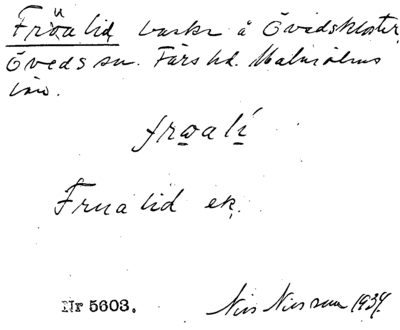 Fröalid backe å Övedskloster,
Öveds sn. Färs hd. Malmöhus
län.
frwalí
Frualid ek.
Nr 5603.
Nils Nilsson 1934.